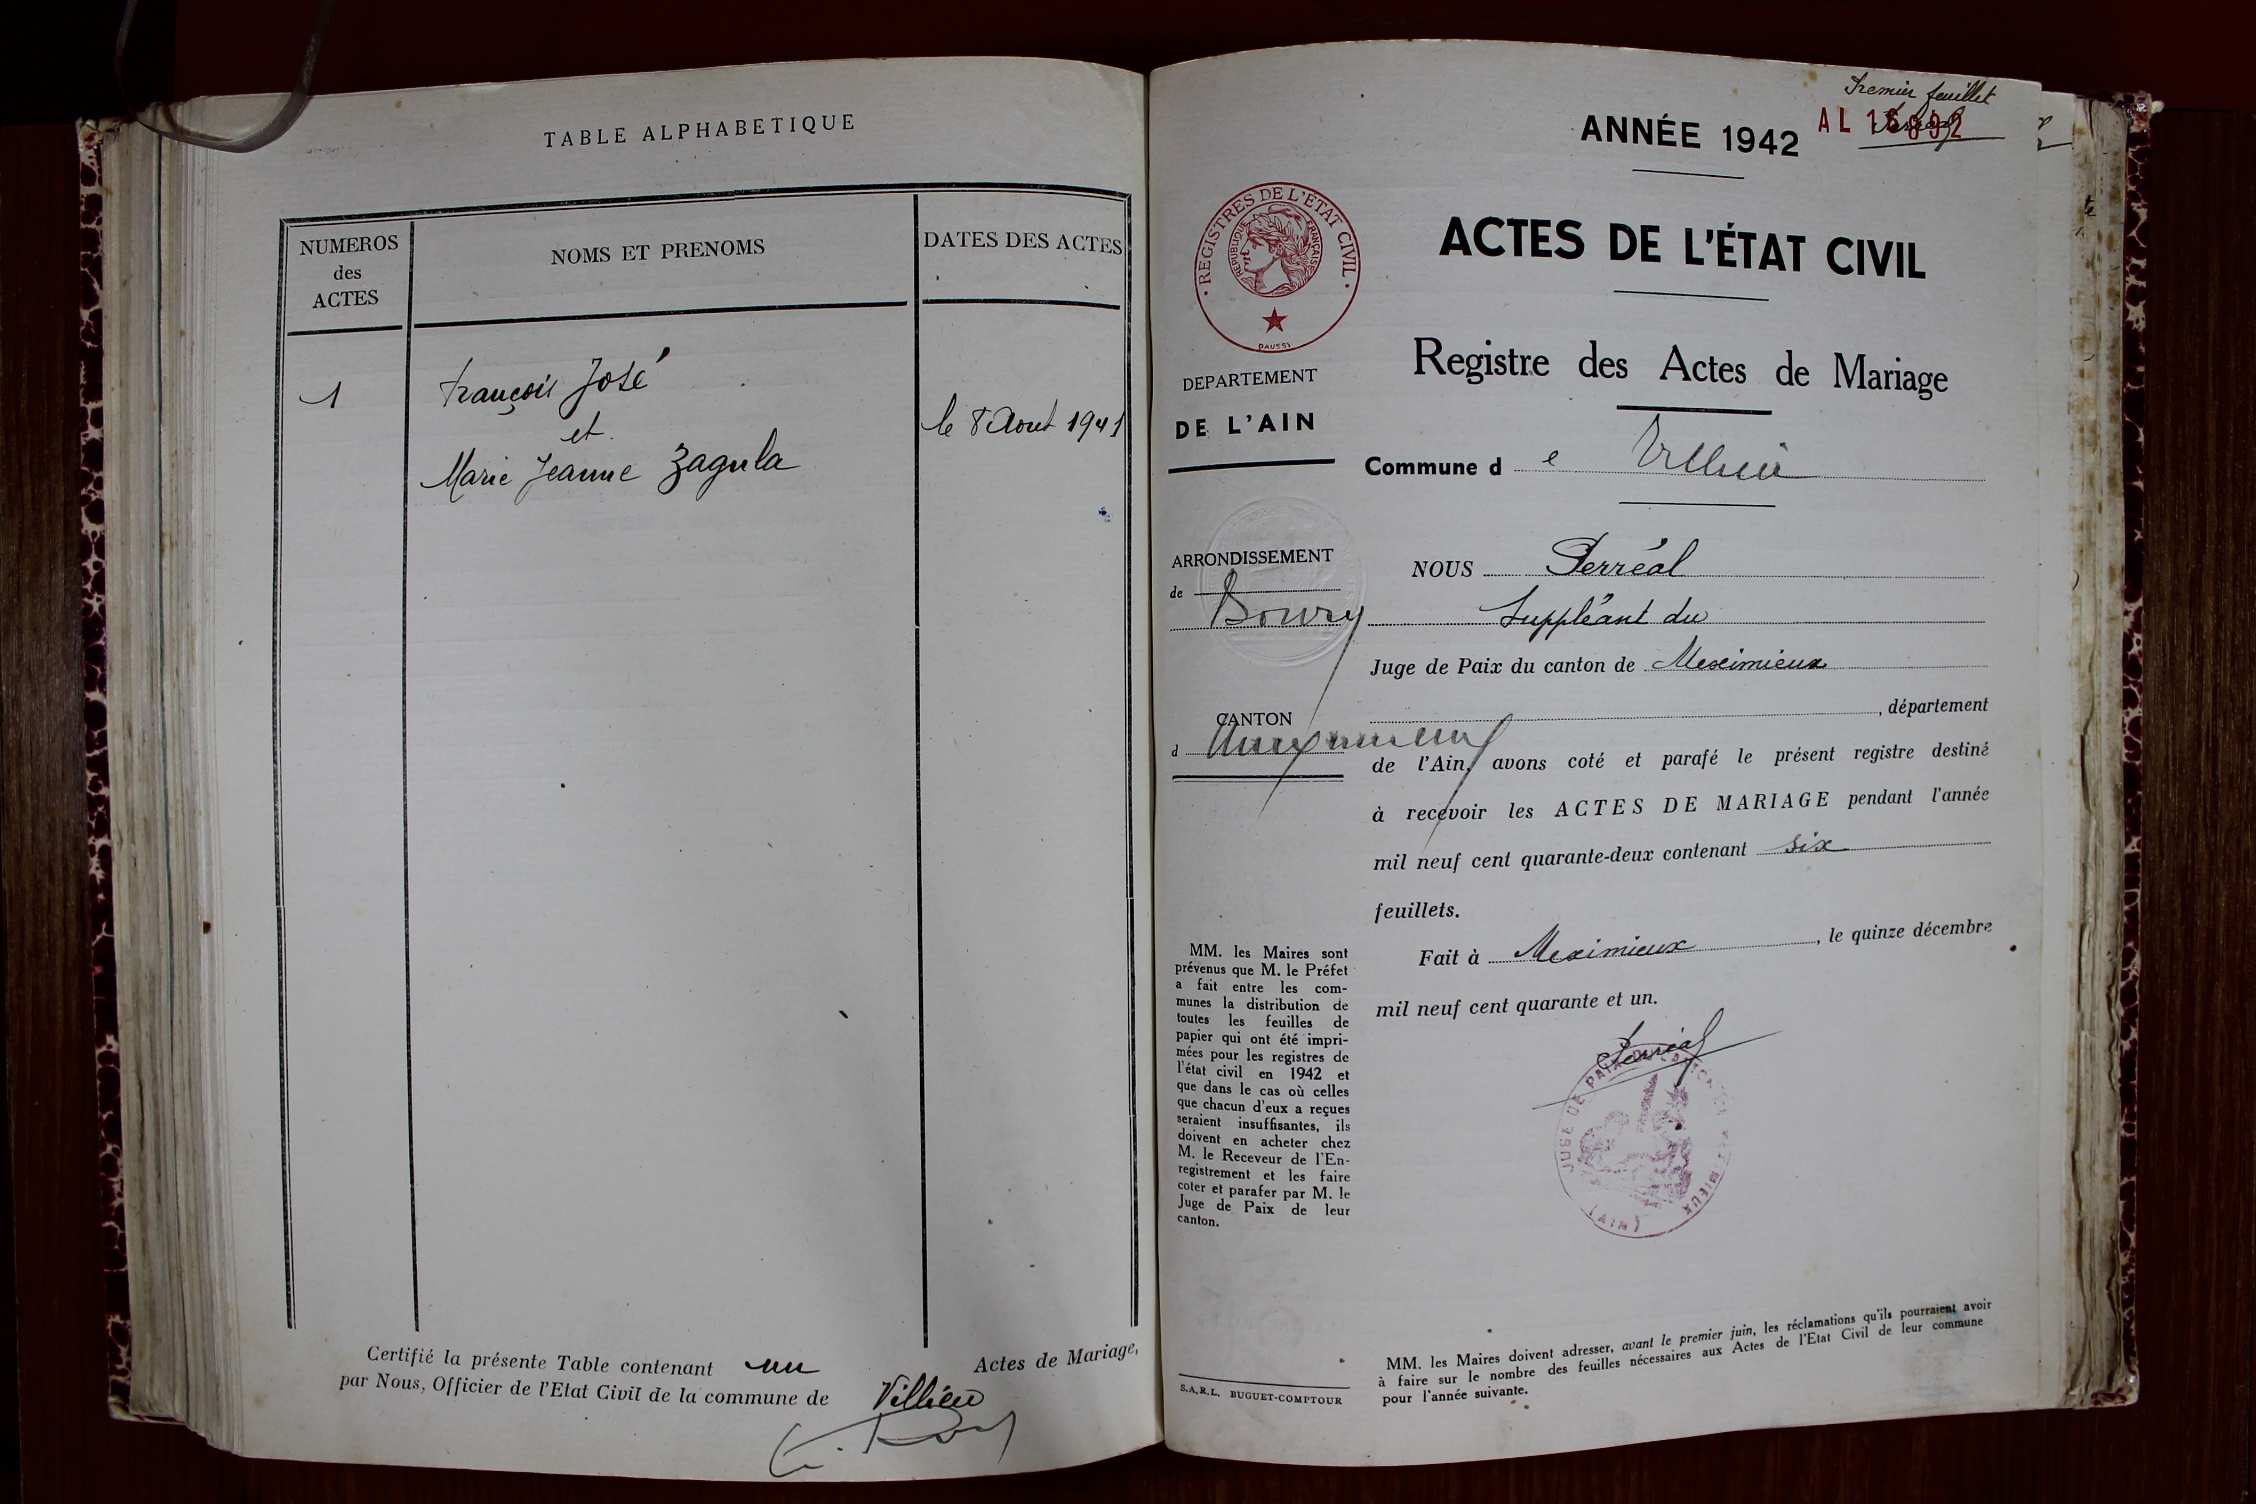 TABLE ALPHABETIQUE
NUMEROS
des
ACTES
NOMS ET PRENOMS
DATES DES ACTES
1
François José
et
Marie Jeanne Zagula
le 8 Aout 1941
Certifié la présente Table contenant un Actes de Mariage,
par Nous, Officier de l'Etat Civil de la commune de Villieu
Premier feuillet
ANNÉE 1942
AL 16892
REGISTRES DE L'ETAT CIVIL
REPUBLIQUE FRANÇAISE
DAUSSI
ACTES DE L'ÉTAT CIVIL
Registre des Actes de Mariage
DEPARTEMENT
DE L'AIN
Commune de Villieu
ARRONDISSEMENT
de
Bourg
CANTON
d
NOUS Perréal
Suppléant du
Juge de Paix du canton de Meximieux
, département
de l'Ain, avons coté et parafé le présent registre destiné
à recevoir les ACTES DE MARIAGE pendant l'année
mil neuf cent quarante-deux contenant six
feuillets.
Fait à Meximieux, le quinze décembre
mil neuf cent quarante et un.
Perréal
JUGE DE PAIX DU CANTON
(AIN)
MM. les Maires sont
prévenus que M. le Préfet
a fait entre les com-
munes la distribution de
toutes les feuilles de
papier qui ont été impri-
mées pour les registres de
l'état civil en 1942 et
que dans le cas où celles
que chacun d'eux a reçues
seraient insuffisantes, ils
doivent en acheter chez
M. le Receveur de l'En-
registrement et les faire
coter et parafer par M. le
Juge de Paix de leur
canton.
S.A.R.L. BUGUET-COMPTOUR
MM. les Maires doivent adresser, avant le premier juin, les réclamations qu'ils pourraient avoir
à faire sur le nombre des feuilles nécessaires aux Actes de l'Etat Civil de leur commune
pour l'année suivante.